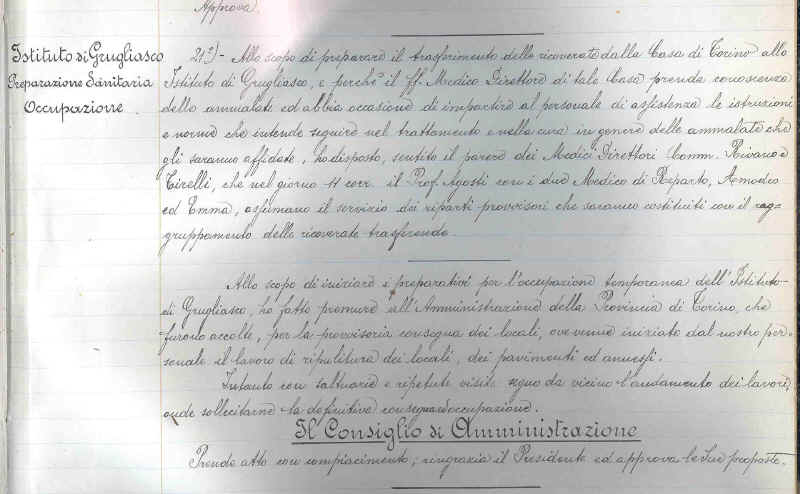 Approva.
Istituto di Grugliasco
Preparazione Sanitaria
Occupazione
21°)- Allo scopo di preparare il trasferimento delle ricoverate dalla Casa di Torino allo
Istituto di Grugliasco, e perchè il ff. Medico Direttore di tale Casa prenda conoscenza
delle ammalate ed abbia occasione di impartire al personale di assistenza le istruzioni
e norme che intende seguire nel trattamento e nella cura in genere delle ammalate che
gli saranno affidate, ho disposto, sentito il parere dei Medici Direttori Comm. Rivano e
Tirelli, che nel giorno 11 corr. il Prof. Agosti con i due Medico di Reparto, Amedeo
ed Emma, assumano il servizio dei riparti provvisori che saranno costituiti con il rag-
gruppamento delle ricoverate trasferende.
Allo scopo di iniziare i preparativi per l'occupazione temporanea dell'Istituto-
di Grugliasco, ho fatto premure all'Amministrazione della Provincia di Torino, che
furono accolte, per la provvisoria consegna dei locali, ove venne iniziato dal nostro per-
sonale il lavoro di ripulitura dei locali, dei pavimenti ed annessi.
Intanto con saltuarie e repetute visite seguo da vicino l'andamento dei lavori,
onde sollecitarne la definitiva consegna e occupazione.
Il Consiglio di Amministrazione
Prende atto con compiacimento; ringrazia il Presidente ed approva le Sue proposte.